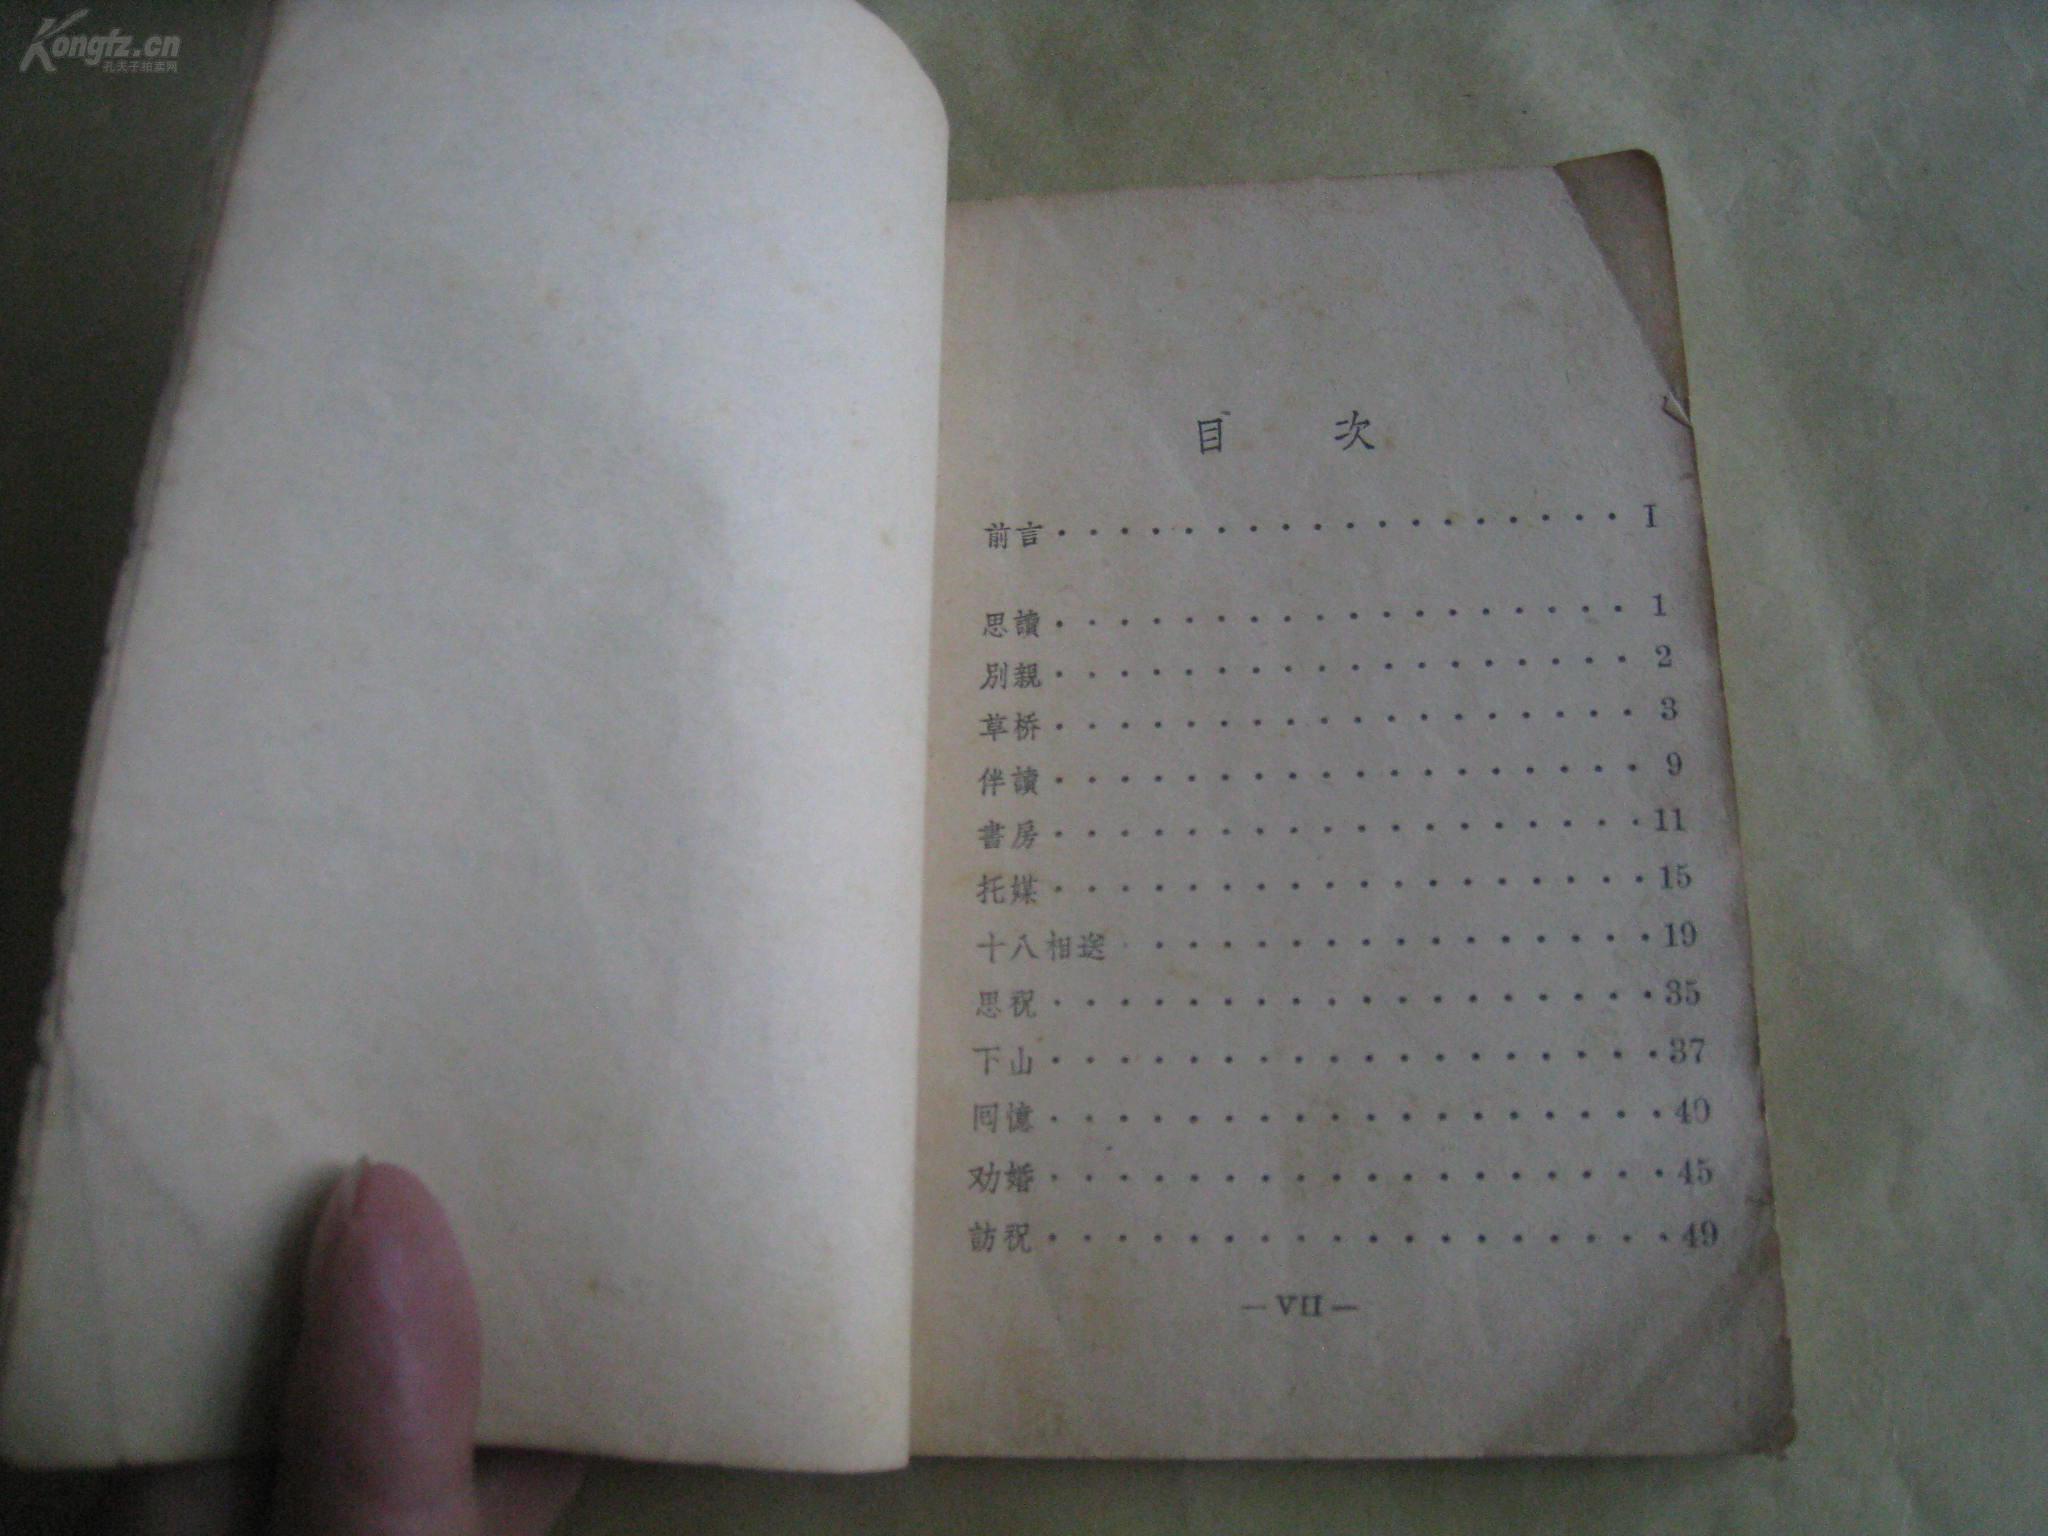 Kongfz.cn
孔夫子拍卖网
目 次
前言 · · · · · · · · · · · · · · · · · · I
思讀 · · · · · · · · · · · · · · · · · · 1
別親 · · · · · · · · · · · · · · · · · · 2
草桥 · · · · · · · · · · · · · · · · · · 3
伴讀 · · · · · · · · · · · · · · · · · · 9
書房 · · · · · · · · · · · · · · · · · · 11
托媒 · · · · · · · · · · · · · · · · · · 15
十八相送 · · · · · · · · · · · · · · · · 19
思祝 · · · · · · · · · · · · · · · · · · 35
下山 · · · · · · · · · · · · · · · · · · 37
囘憶 · · · · · · · · · · · · · · · · · · 40
劝婚 · · · · · · · · · · · · · · · · · · 45
訪祝 · · · · · · · · · · · · · · · · · · 49
— VII —